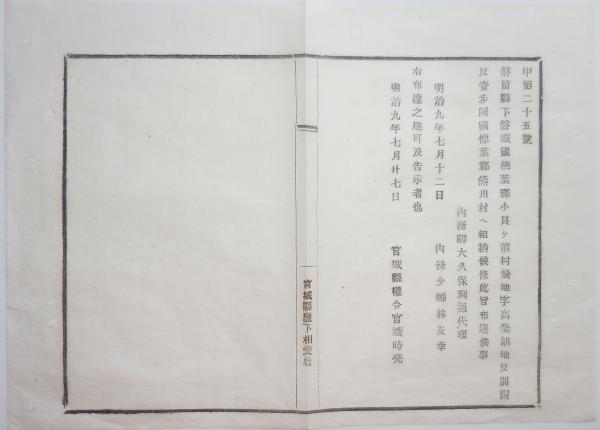 甲第二十五號
磐前縣下磐城國楢葉郡小良ヶ濱村飛地字高柴耕地反別四
反壹歩同國標葉郡熊川村ヘ組換候條此旨布達候事
內務卿大久保利通代理
明治九年七月十二日　內務少輔林友幸
右布達之趣可及告示者也
明治九年七月廿七日　宮城縣權令宮城時亮
宮城縣廳下相愛社